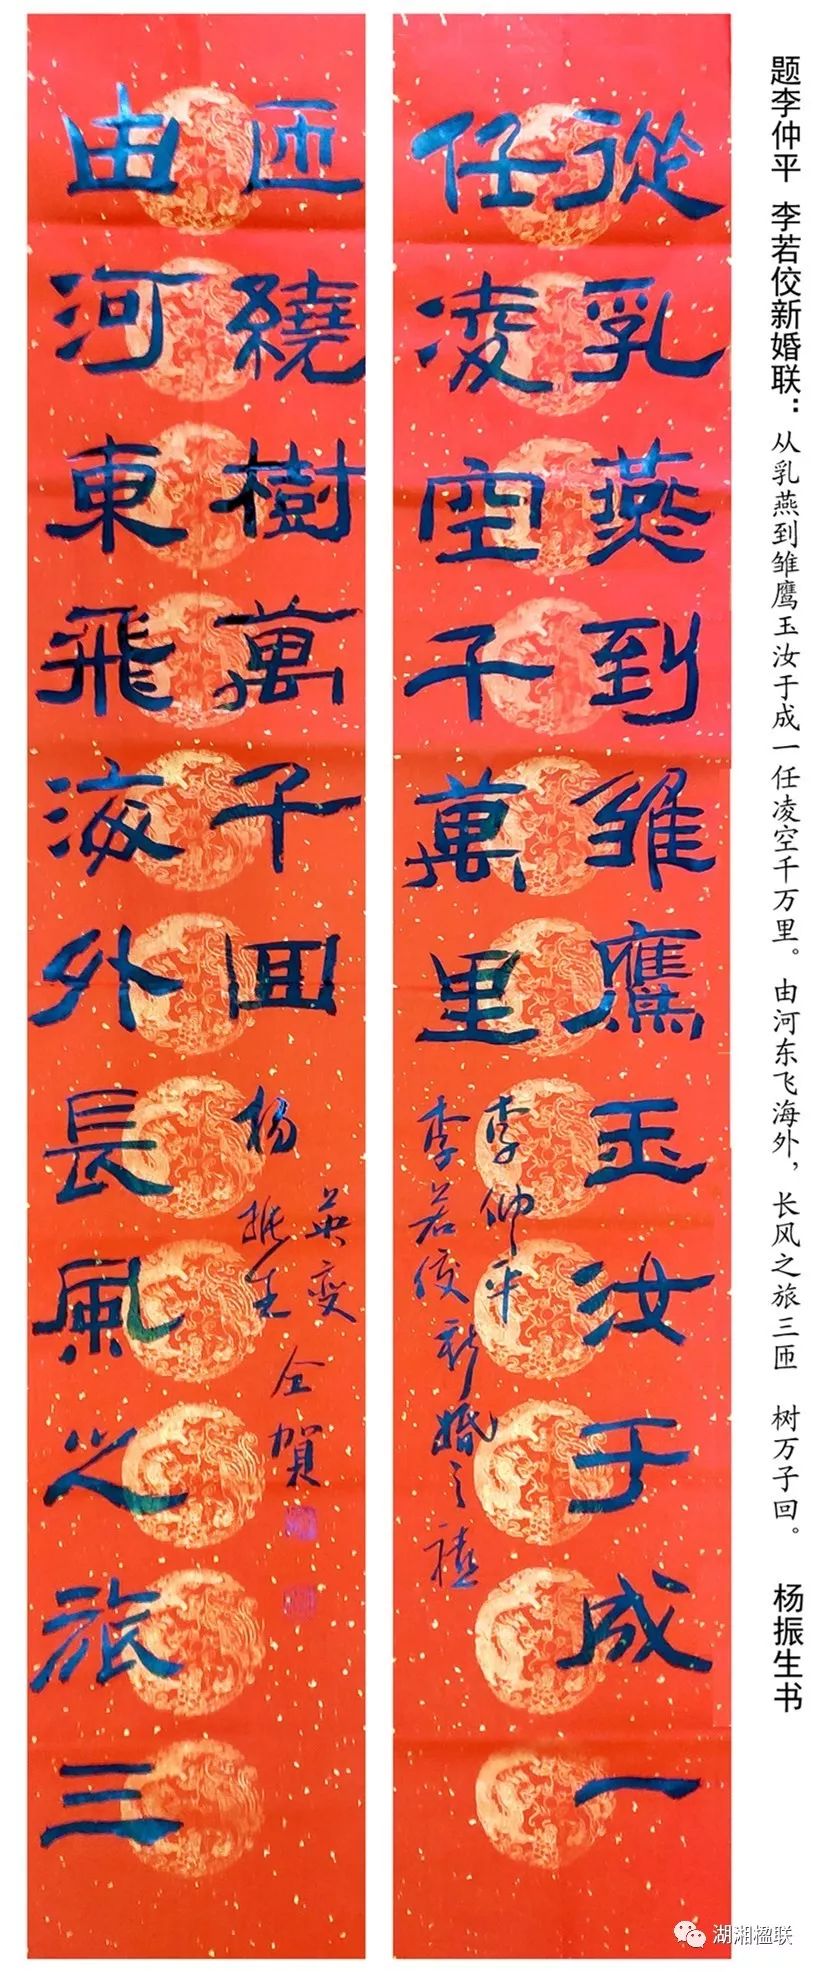 题李仲平 李若佼新婚联：从乳燕到雏鹰玉汝于成一任凌空千万里。由河东飞海外，长风之旅三匝 树万子回。 杨振生书
從乳燕到雏鷹玉汝于成一
任凌空千萬里
李仲平
李若佼 新婚之禧
由河東飛海外長風之旅三
匝繞樹萬子囬
杨振生
仝賀
湖湘楹联